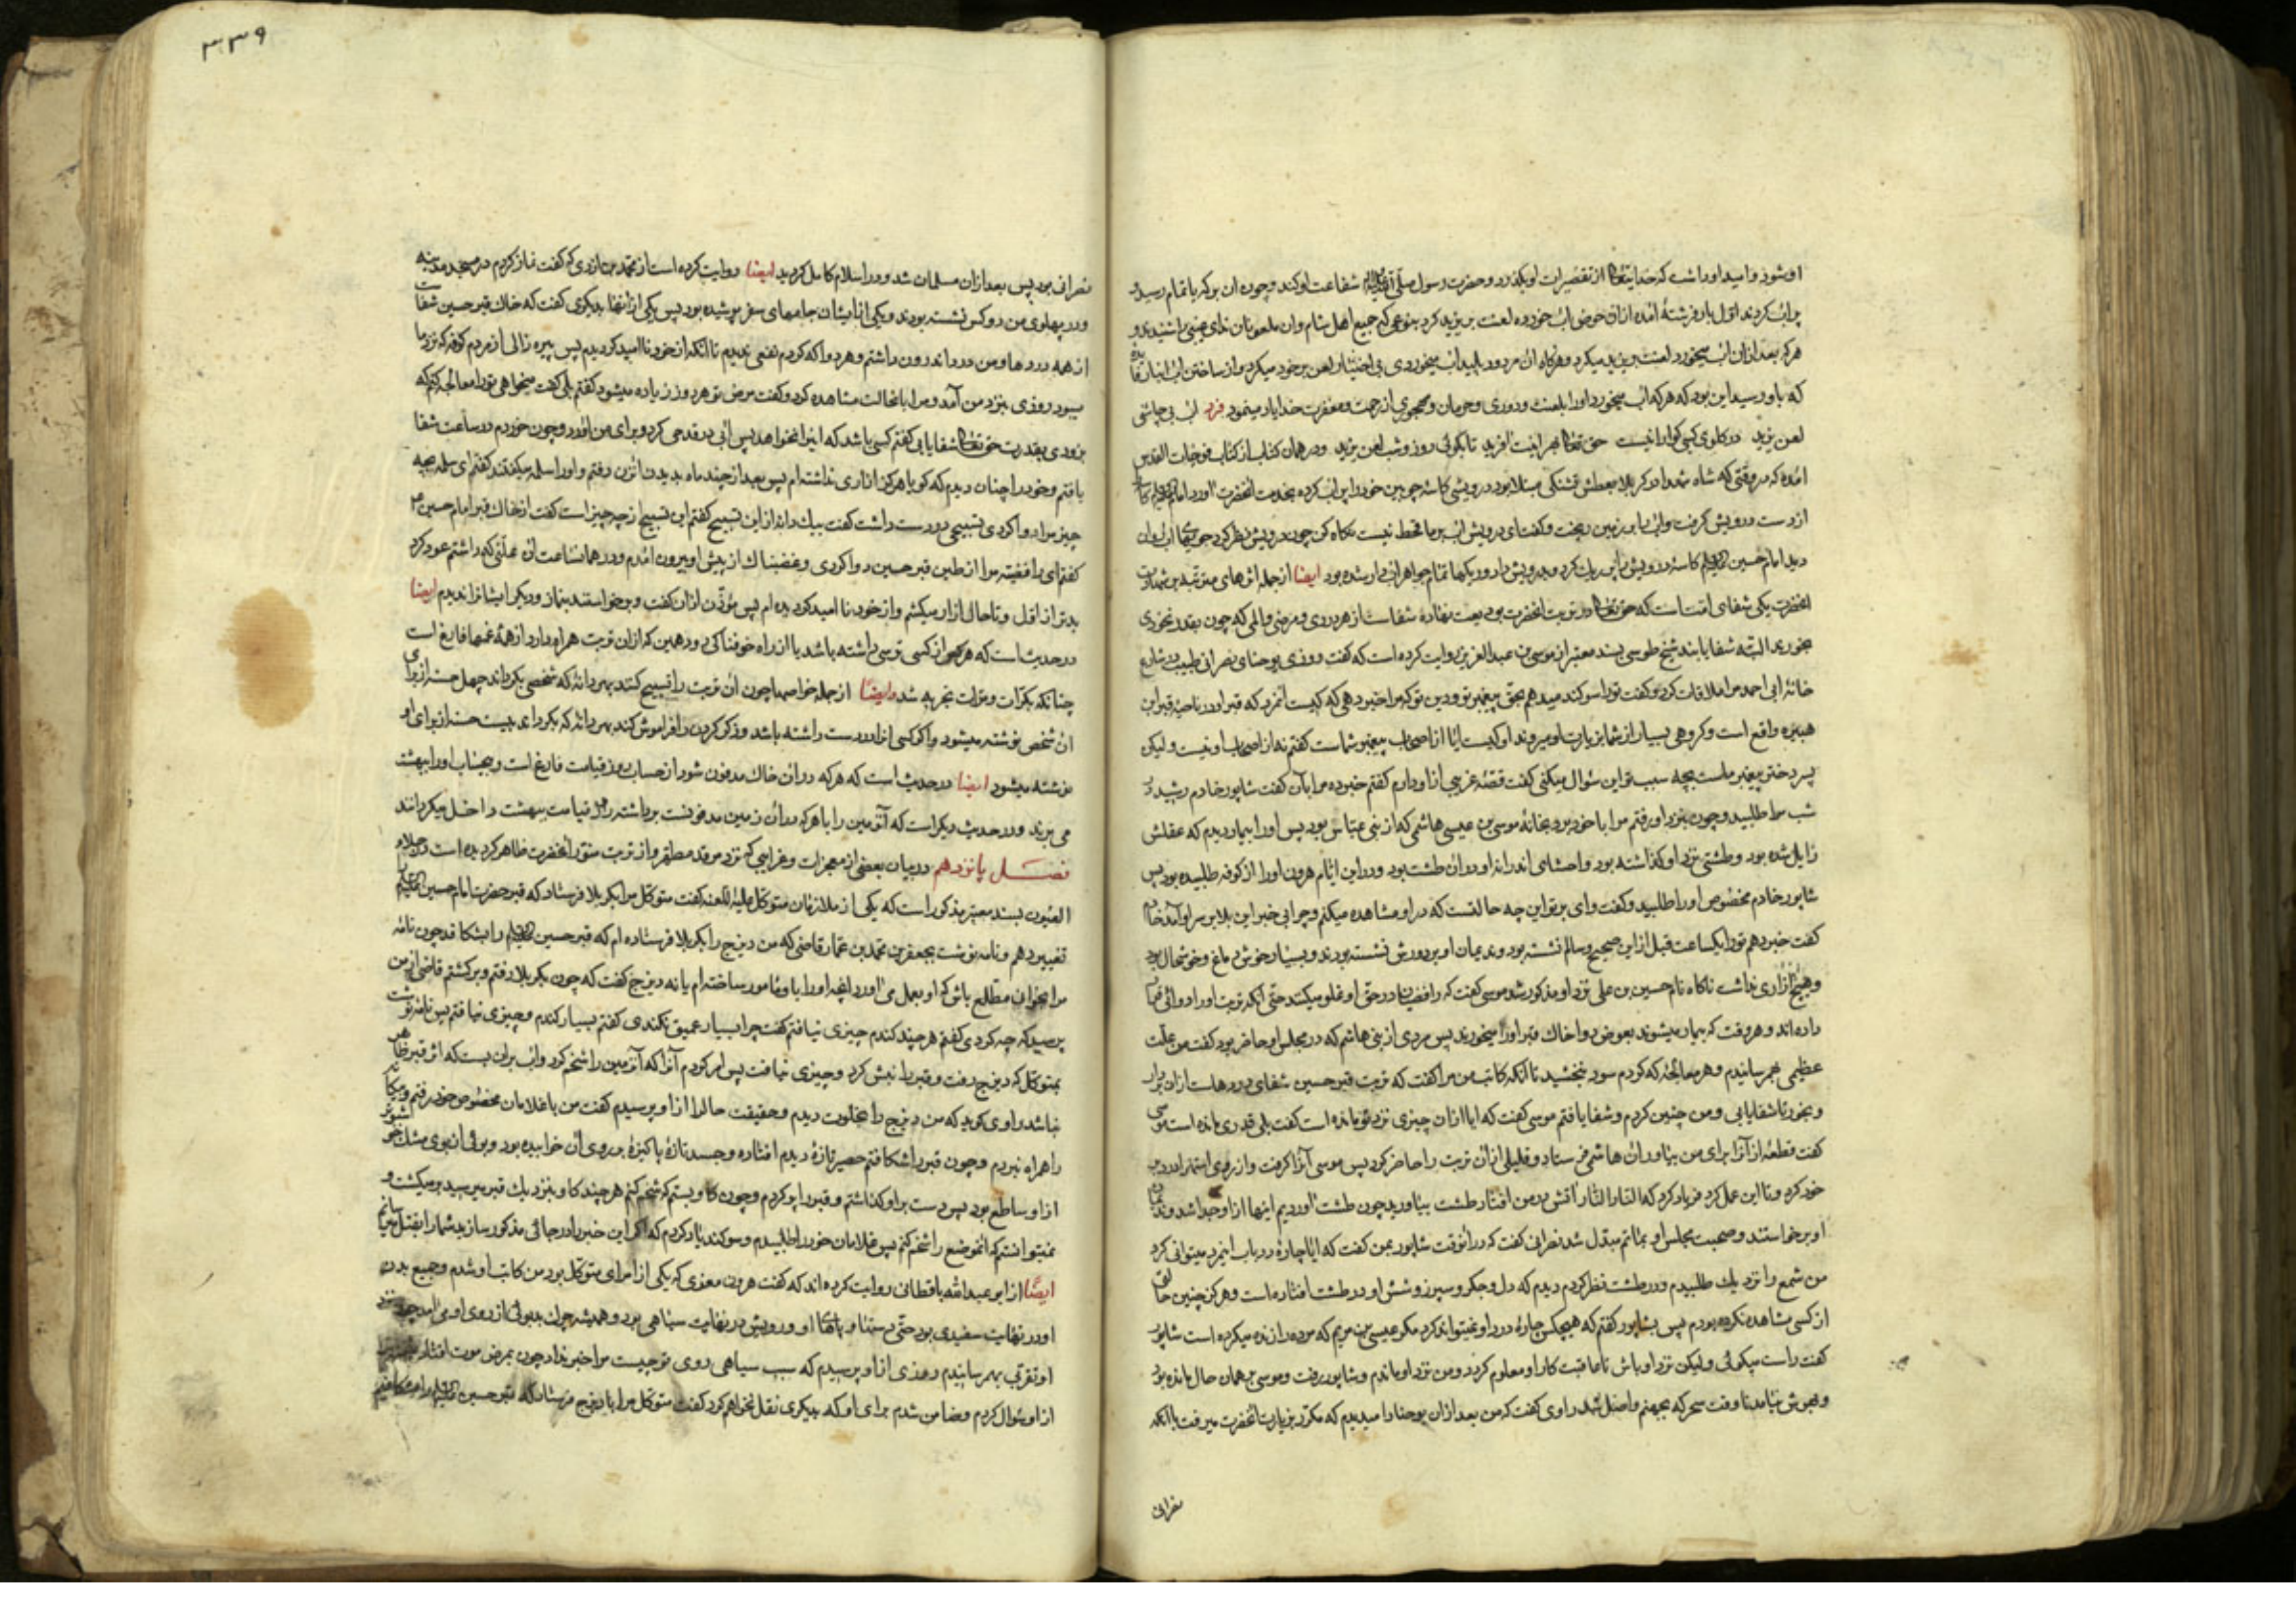 اوشود وامید او داشت که خدایتعالی از تقصیرات او بگذرد و حضرت رسول صلی الله علیه واله شفاعت او کند وچون ان برکه باتمام رسید
پر اب کردند اول بار فرشتهٔ امده ازان حوض اب خورده لعنت بر یزید کرد بنوعی که جمیع اهل شام وان ملعونان ندای غیبی را شنیدند و
هرکه بعد ازان اب میخورد لعنت بر یزید میکرد وهرگاه ان مردود پلید اب میخوردی بی اختیار لعن بر خود میکرد و از ساختن اب انبار
که باو رسید این بود که هرکه اب میخورد اورا بلعنت ودوری وحرمان ومهجوری از رحمت ومغفرت خدا یاد مینمود فرد اب بی چاشنی
لعن یزید در گلوی کسی گوارا نیست حق تعالی بهر اینت افرید تا بگوئی روز وشب لعن یزید ودر همان کتاب از کتاب فوحات القدس
امده که در وقتی که شاه شهدا در کربلا بعطش و تشنگی مبتلا بود درویشی کاسه چوبین خود را پر اب کرده بخدمت انحضرت اورد امام علیه السلام کاسه
از دست درویش گرفت وابرا بر زمین ریخت وگفت ای درویش اب بر ما قحط نیست نگاه کن چون درویش نظر کرد جویهای اب روان
دید امام حسین علیه السلام کاسه درویش را پر ریگ کرد وبدرویش داد وریگها تمام جواهر ابدار شده بود ایضا از جمله اثرهای مترتبه بر شهادت
انحضرت یکی شفای امت است که حق تعالی در تربت انحضرت بودیعت نهاده شفاست از هر دردی ومرضی والمی که چون بقدر نخودی
بخورند البته شفا یابند شیخ طوسی بسند معتبر از موسی بن عبد العزیز روایت کرده است که گفت روزی یوحنای نصرانی طبیب در شارع
خانهٔ ابی احمد مرا ملاقات کرد وگفت تورا سوگند میدهم بحق پیغمبر تو ودین تو که مرا خبر دهی که کیست انمرد که قبر او در ناحیهٔ قبر ابن
هبیره واقع است وگروهی بسیار از شما بزیارت او میروند او کیست ایا از اصحاب پیغمبر شماست گفتم نه از اصحاب او نیست ولیکن
پسر دختر پیغمبر ماست بچه سبب تو این سئوال میکنی گفت قصهٔ غریبی از او دارم گفتم خبر ده مرا بآن گفت شاپور خادم رشید
شب مرا طلبید وچون بنزد او رفتم مرا با خود برد بخانهٔ موسی بن عیسی هاشمی که از بنی عباس بود پس او را بیمار دیدم که عقلش
زایل شده بود وطشتی نزد او گذاشته بود واحشای اندرانه او در ان طشت بود ودر این ایام هرون اورا از کوفه طلبیده بود پس
شاپور خادم مخصوص اورا طلبید وگفت وای بر تو این چه حالتست که در او مشاهده میکنم وچرا بی خبر این بلا بر سر او آمد خادم
گفت خبر دهم تورا یکساعت قبل از این صحیح وسالم نشسته بود وندیمان او بر دورش نشسته بودند وبسیار خوش دماغ وخوشحال بود
وهیچ ازاری نداشت ناگاه نام حسین بن علی نزد او مذکور شد موسی گفت که رافضیان در حق او غلو میکنند حتی انکه تربت اورا دوائی قرار
داده اند وهر وقت که بیمار میشوند بعوض دوا خاک قبر اورا میخورند پس مردی از بنی هاشم که در مجلس او حاضر بود گفت من علت
عظیمی بهم رسانیدم وهر معالجهٔ که کردم سود نبخشید تا انکه کاتب من مرا گفت که تربت قبر حسین شفای دردهاست ازان بردار
وبخور تا شفا یابی ومن چنین کردم وشفا یافتم موسی گفت که ایا ازان چیزی نزد تو مانده است گفت بلی قدری مانده است موسی
گفت قطعهٔ از آنرا برای من بیاور ان هاشمی فرستاد وقلیلی ازان تربت را حاضر کرد پس موسی آنرا گرفت واز روی استهزا در دبر
خود کرد وتا این عمل کرد فریاد کرد که النار النار اتش در من افتاد طشت بیاورید چون طشت اوردیم اینها از او جدا شد وندیمان
او برخواستند وصحبت مجلس او بماتم مبدل شد نصرانی گفت که در انوقت شاپور بمن گفت که ایا چارهٔ در باب اینمرد میتوانی کرد
من شمع را نزدیک طلبیدم ودر طشت نظر کردم دیدم که دل وجگر وسپرز وشش او در طشت افتاده است وهرگز چنین حالتی
از کسی مشاهده نکرده بودم پس بشاپور گفتم که هیچکس چارهٔ درد او نمیتواند کرد مگر عیسی بن مریم که مرده را زنده میکرده است شاپور
گفت راست میگوئی ولیکن نزد او باش تا عاقبت کار او معلوم گردد ومن نزد او ماندم وشاپور رفت وموسی بر همان حال مانده بود
وبهوش نیامد تا وقت سحر که بجهنم واصل شد راوی گفت که من بعد ازان یوحنا را میدیدم که مکرر بزیارت انحضرت میرفت با انکه
نصرانی
۳۳۹
نصرانی بود پس بعد ازان مسلمان شد ودر اسلام کامل گردید ایضا روایت کرده است از محمد بن ازدی که گفت نماز کردم در مسجد مدینه
ودر پهلوی من دو کس نشسته بودند ویکی از ایشان جامهای سفر پوشیده بود پس یکی از انها بدیگری گفت که خاک قبر حسین شفاست
از همه دردها ومن درد اندرون داشتم وهر دوا که کردم نفعی ندیدم تا انکه از خود نا امید گردیدم پس پیره زالی از مردم کوفه که نزد ما
میبود روزی بنزد من آمد ومرا باینحالت مشاهده کرد وگفت مرض تو هر روز زیاده میشود گفتم بلی گفت میخواهی تورا معالجه کنم که
بزودی بقدرت حق تعالی شفا یابی گفتم کسی باشد که اینرا نخواهد پس ابی در قدحی کرد وبرای من اورد وچون خوردم در ساعت شفا
یافتم وخود را چنان دیدم که گویا هرگز ازاری نداشته ام پس بعد از چند ماه بدیدن انزن رفتم واورا سلمه میگفتند گفتم ای سلمه بچه
چیز مرا دوا کردی تسبیحی در دست داشت گفت بیک دانه از این تسبیح گفتم این تسبیح از چه چیز است گفت از خاک قبر امام حسین
گفتم ای رافضیه مرا از طین قبر حسین دوا کردی وغضبناک از پیش او بیرون امدم ودر همانساعت ان علتی که داشتم عود کرد
بدتر از اول وتا حال ازار میکشم واز خود نا امید گردیده ام پس مؤذن اذان گفت وبرخواستند بنماز ودیگر ایشانرا ندیدم ایضا
در حدیث است که هرکس از کسی ترسی داشته باشد یا از راه خوفناکی ودر همین که ازان تربت همراه دارد از همهٔ غمها فارغ است
چنانکه بکرات ومرات تجربه شد وایضا از جمله خواصها چون ان تربت را تسبیح کنند بهر دانهٔ که شخصی بگرداند چهل حسنه از برای
ان شخص نوشته میشود واگر کسی انرا در دست داشته باشد وذکر کردن را فراموش کند بهر دانهٔ که بگرداند بیست حسنه از برای او
نوشته میشود ایضا در حدیث است که هرکه در ان خاک مدفون شود از حساب روز قیامت فارغ است وبیحساب اورا ببهشت
می برند ودر حدیث دیگر است که آنزمین را با هرکه در ان زمین مدفونست برداشته روز قیامت ببهشت داخل میگردانند
فصل پانزدهم در بیان بعضی از معجزات وغرایبی که نزد مرقد مطهر واز تربت منور انحضرت ظاهر گردیده است در جلاء
العیون بسند معتبر مذکور است که یکی از ملازمان متوکل علیه اللعنه گفت متوکل مرا بکربلا فرستاد که قبر حضرت امام حسین علیه السلام را
تغییر دهم ونامه نوشت بجعفر بن محمد بن عمار قاضی که من دیزج را بکربلا فرستاده ام که قبر حسین علیه السلام را بشکافد چون نامه
مرا بخوانی مطلع باش که او بعمل می اورد انچه اورا باو مامور ساخته ام یا نه دیزج گفت که چون بکربلا رفتم وبرگشتم قاضی از من
پرسید که چه کردی گفتم هر چند کندم چیزی نیافتم گفت چرا بسیار عمیق نکندی گفتم بسیار کندم وچیزی نیافتم پس نامه نوشت
بمتوکل که دیزج رفت وقبر را نبش کرد وچیزی نیافت پس امر کردم آنرا که آنزمین را شخم کرد واب بران بست که اثر قبر ظاهر
نباشد راوی گوید که من دیزج را بخلوت دیدم وحقیقت حالرا از او پرسیدم گفت من با غلامان مخصوص خود رفتم وبیگانه
را همراه نبردم وچون قبر را شکافتم حصیر تازهٔ دیدم افتاده وجسد تازهٔ پاکیزهٔ بر روی ان خوابیده بود وبوئی از بوی مشک خوشتر
از او ساطع بود پس دست بر او نگذاشتم وقبر را پر کردم وچون گاو بستم که شخم کنم هر چند گاو بنزدیک قبر میرسید بر میگشت و
نمیتوانستم که انموضع را شخم کنم پس غلامان خود را طلبیدم وسوگند یاد کردم که اگر این خبر را در جائی مذکور سازید شمارا بقتل میرسانم
ایضا از ابو عبد الله باقطانی روایت کرده اند که گفت هرون معری که یکی از امرای متوکل بود من کاتب او شدم وجمیع بدن
او در نهایت سفیدی بود حتی دستها وپاها او ورویش در نهایت سیاهی بود وهمیشه چرک بدبوئی از روی او می امد چون نزد
او تقربی بهم رسانیدم روزی از او پرسیدم که سبب سیاهی روی تو چیست مرا خبر نداد چون بمرض موت افتاد
از او سئوال کردم وضامن شدم برای او که بدیگری نقل نخواهم کرد گفت متوکل مرا با دیزج فرستاد که قبر حسین علیه السلام را بشکافیم